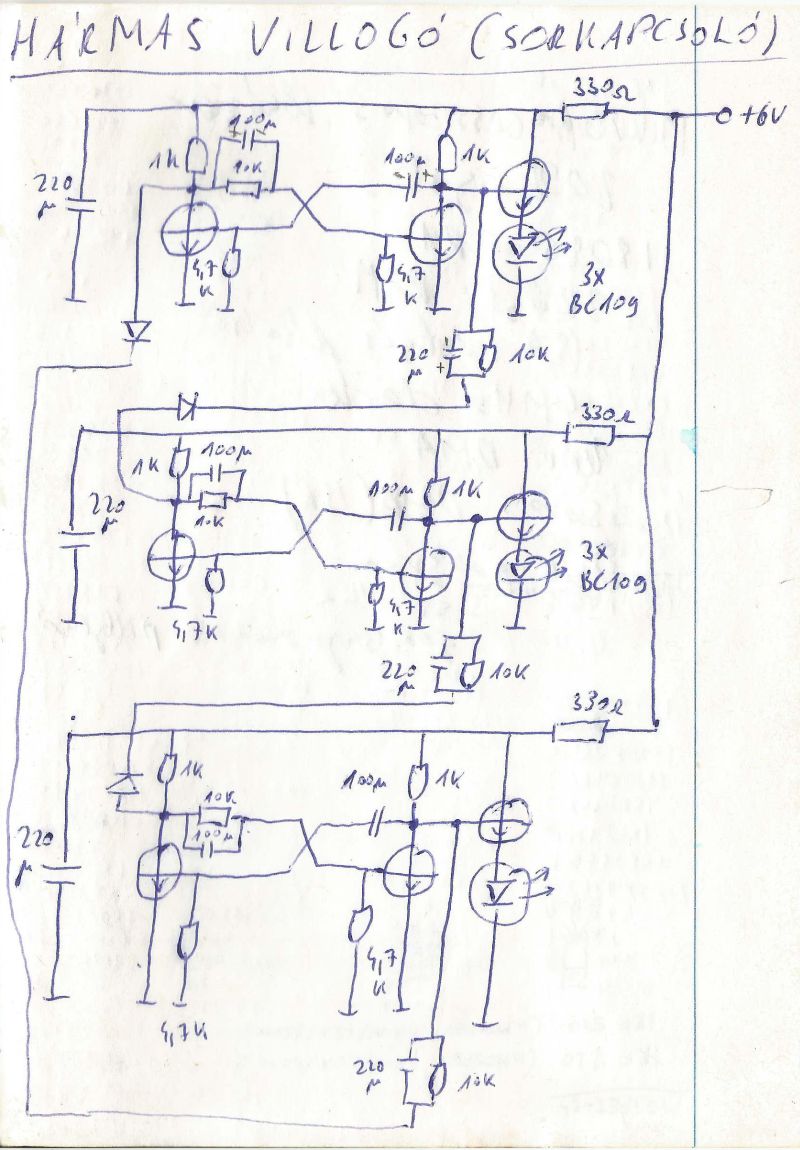 HÁRMAS VILLOGÓ (SORKAPCSOLÓ)
330Ω
+6V
100μ
+
1K
10K
100μ
- +
1K
220
μ
4,7
K
4,7
K
3X
BC109
220
μ
-
+
10K
330Ω
1K
100μ
10K
220
μ
100μ
1K
3X
BC109
4,7K
4,7
K
220
μ
10K
330Ω
1K
10K
100μ
100μ
1K
220
μ
4,7K
4,7
K
220
μ
10K